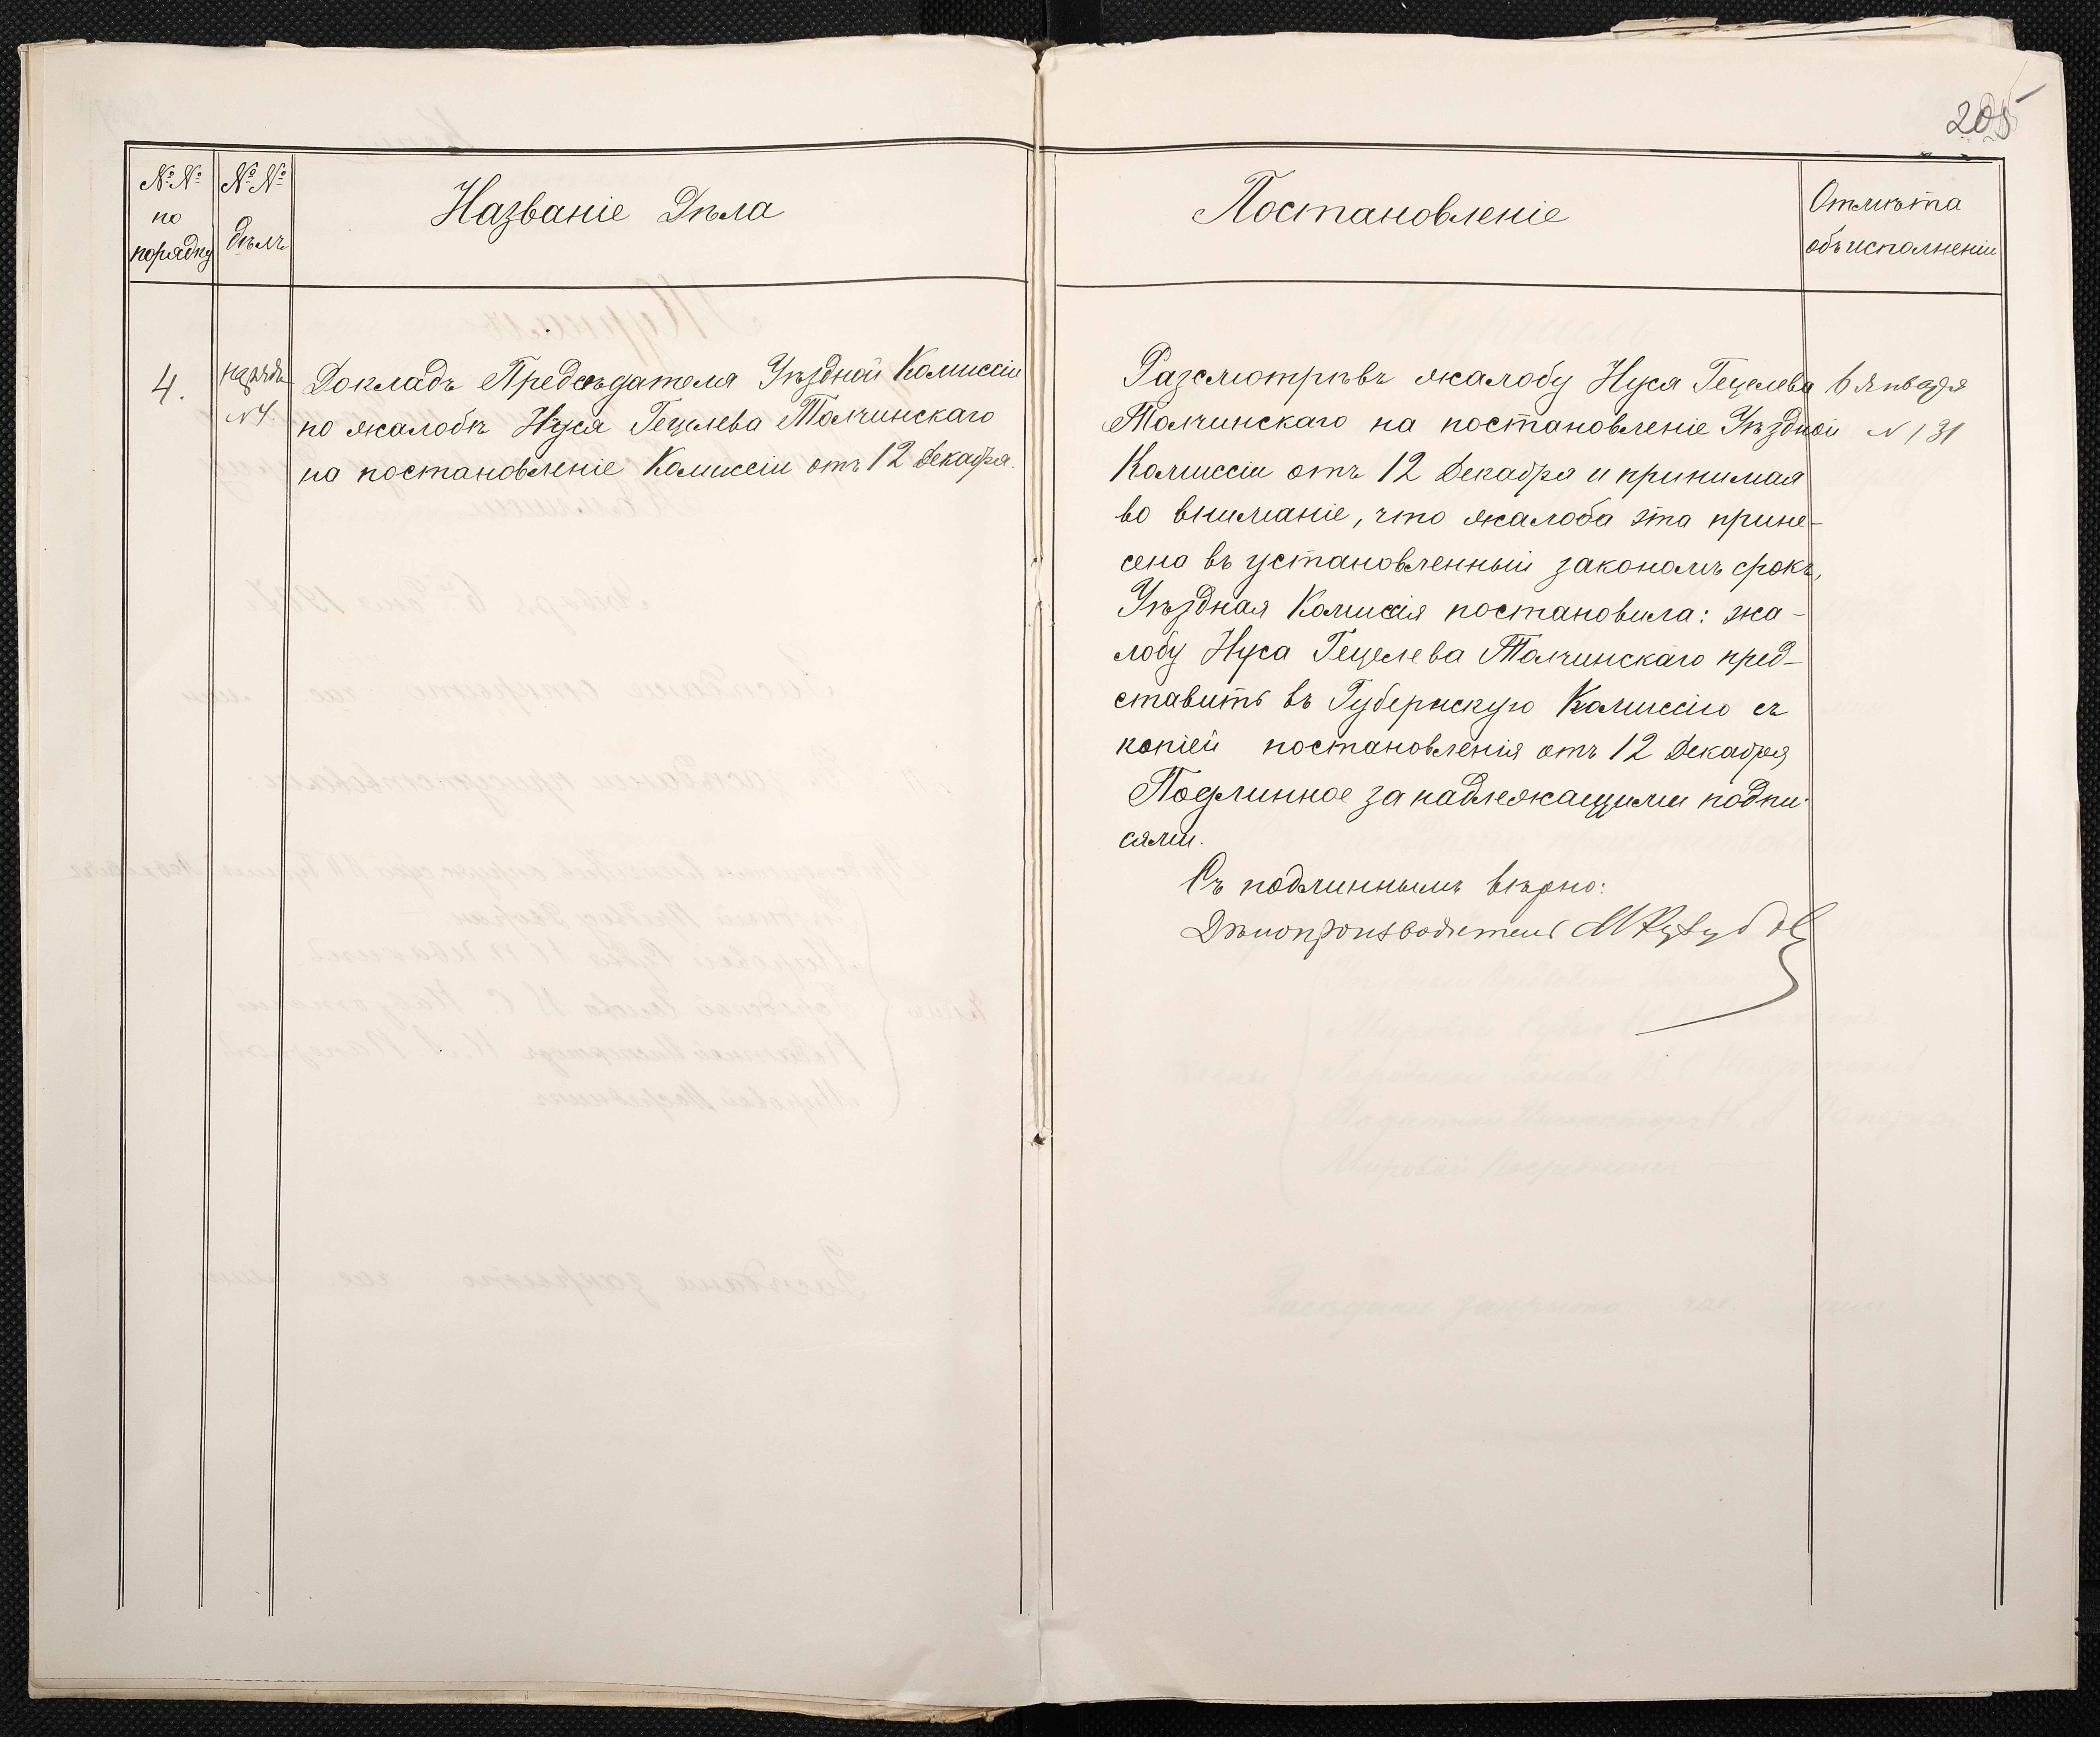 205
№№ по порядку
№№ дѣлъ
Названіе Дѣла
Постановленіе
Отмѣтка объ исполненіи
4.
нарядъ
№ 4.
Докладъ Предсѣдателя Уѣздной Комиссіи
по жалобѣ Нуся Гецелева Толчинскаго
на постановленіе Комиссіи отъ 12 Декабря.
Разсмотрѣвъ жалобу Нуся Гецелева
Толчинскаго на постановленіе Уѣздной
Комиссіи отъ 12 Декабря и принимая
во вниманіе, что жалоба эта прине-
сена въ установленный закономъ срокъ,
Уѣздная Комиссія постановила: жа-
лобу Нуса Гецелева Толчинскаго пред-
ставить въ Губернскую Комиссію съ
копіей постановленія отъ 12 Декабря
Подлинное за надлежащими подпи-
сями.
Съ подлиннымъ вѣрно:
Дѣлопроизводитель
6 Января
№ 131